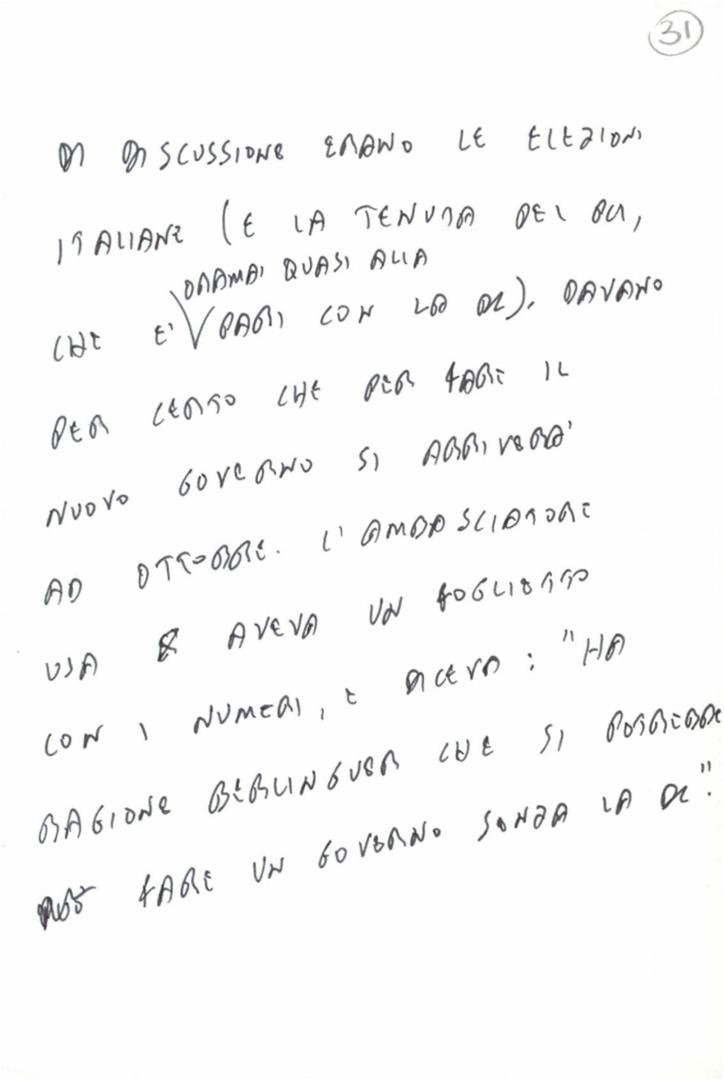 31
DI DISCUSSIONE ERANO LE ELEZIONI
ITALIANE (E LA TENUTA DEL PCI,
ORAMAI QUASI ALLA
CHE E' PARI CON LA DC). DAVANO
PER CERTO CHE PER FARE IL
NUOVO GOVERNO SI ARRIVERA'
AD OTTOBRE. L'AMBASCIATORE
USA AVEVA UN FOGLIETTO
CON I NUMERI, E DICEVA: "HA
RAGIONE BERLINGUER CHE SI POTREBBE
FARE UN GOVERNO SENZA LA DC".